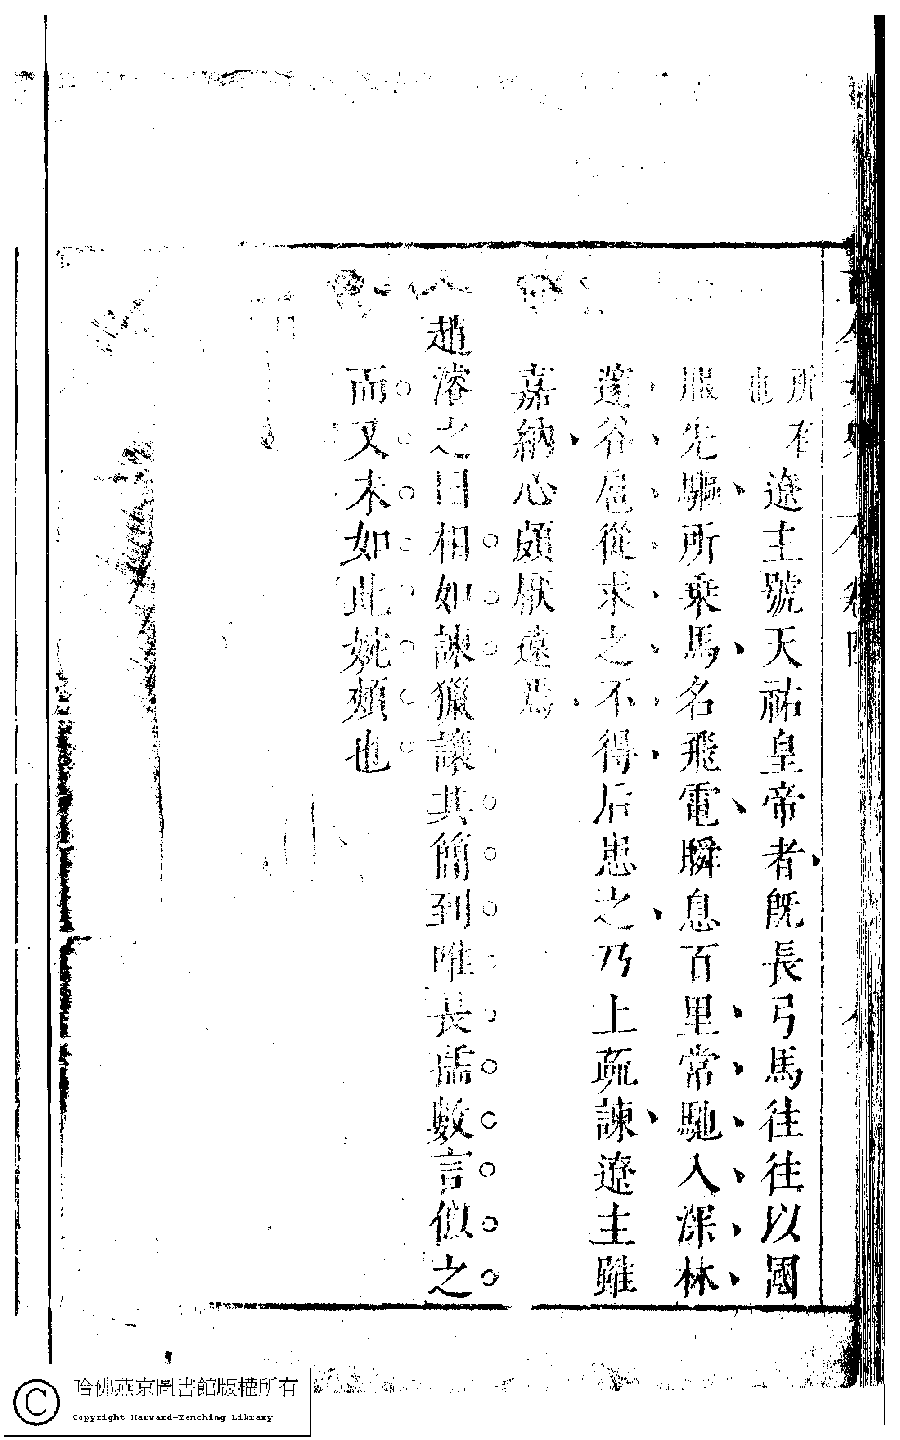 所有
也
遼主號天祐皇帝者既長弓馬徃徃以國
服先驅所乗馬名飛電瞬息百里常馳入深林
邃谷扈從求之不得后患之乃上疏諫遼主雖
嘉納心頗厭遠焉
趙濬之曰相如諫獵讓其簡到唯長孺數言似之
而又未如此婉頰也
哈佛燕京圖書館版權所有
Copyright Harvard-Yenching Library